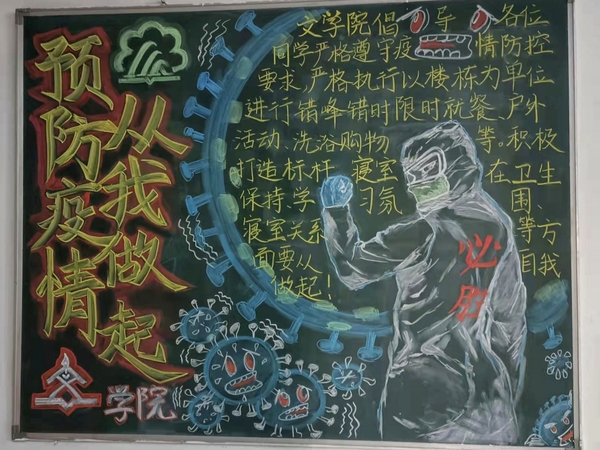 预防疫情
从我做起
文学院倡导各位
同学严格遵守疫情防控
要求,严格执行以楼栋为单位
进行错峰错时限时就餐、户外
活动、洗浴购物等。积极
打造标杆寝室在卫生
保持、学习氛围、
寝室关系等方
面要从自我
做起!
必胜
学院